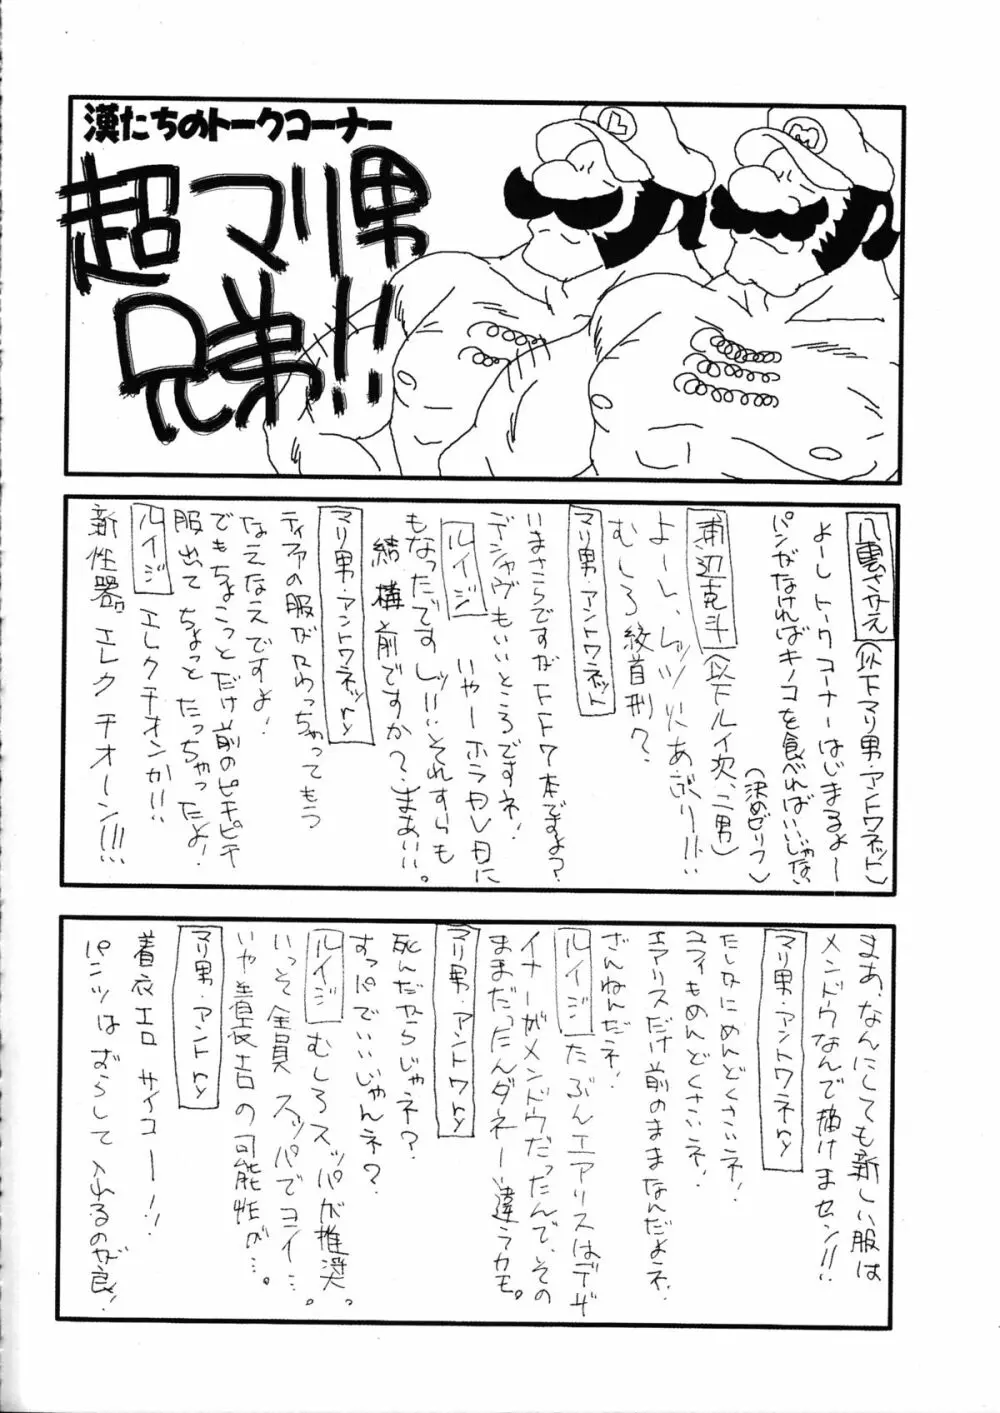 漢たちのトークコーナー
超マリ男
兄弟!!
L
M
八雲さかえ(以下マリ男・アントワネット)
よーしトークコーナーはじまるよー
パンがなければキノコを食べればいいじゃない
(決めゼリフ)
浦辺克斗(以下ルイ次、二男)
よーし、レッツ火あぶりー!!
むしろ絞首刑?
マリ男・アントワネット
いまさらですがFF7本ですよ?
デジャヴもいいところですネ!
ルイジ いやーホラACムービーに
もなったですしッ!!それすらも
結構前ですか?まあいい。
マリ男・アントワネッry
ティファの服がかわっちゃってもう
なえなえですよ!
でもちょこっとだけ前のピチピチ
服出てちょっとたっちゃったよ!
ルイジ エレクチオンか!!
新性器。エレクチオーン!!!
まあ、なんにしても新しい服は
メンドウなんで描けませセン!!
マリ男・アントワネry
たしかにめんどくさいネ!
ユフィもめんどくさいネ!
エアリスだけ前のままなんだよネ
ざんねんだネ!
ルイジ たぶんエアリスはデザ
イナーがメンドウだったんで、その
ままだったんダネー違うカモ。
マリ男・アントワry
死んだからじゃネ?
すっパでいいじゃんネ?
ルイジ むしろスッパが推奨。
いっそ全員スッパでヨイ…。
いや着衣エロの可能性が…。
マリ男・アントry
着衣エロサイコー!!
パンツはずらして入れるのが良!